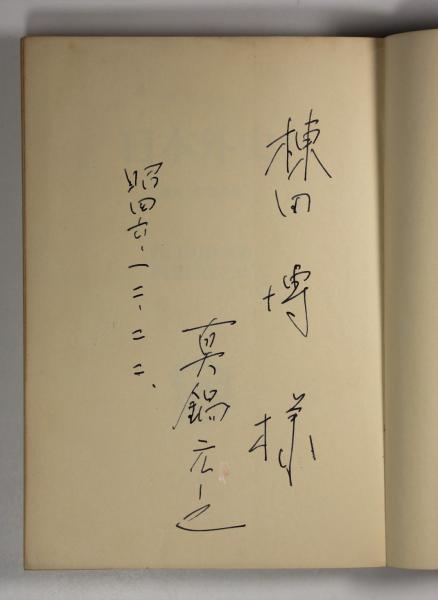 棟田博様
真鍋元之
昭四六.一二.二二.